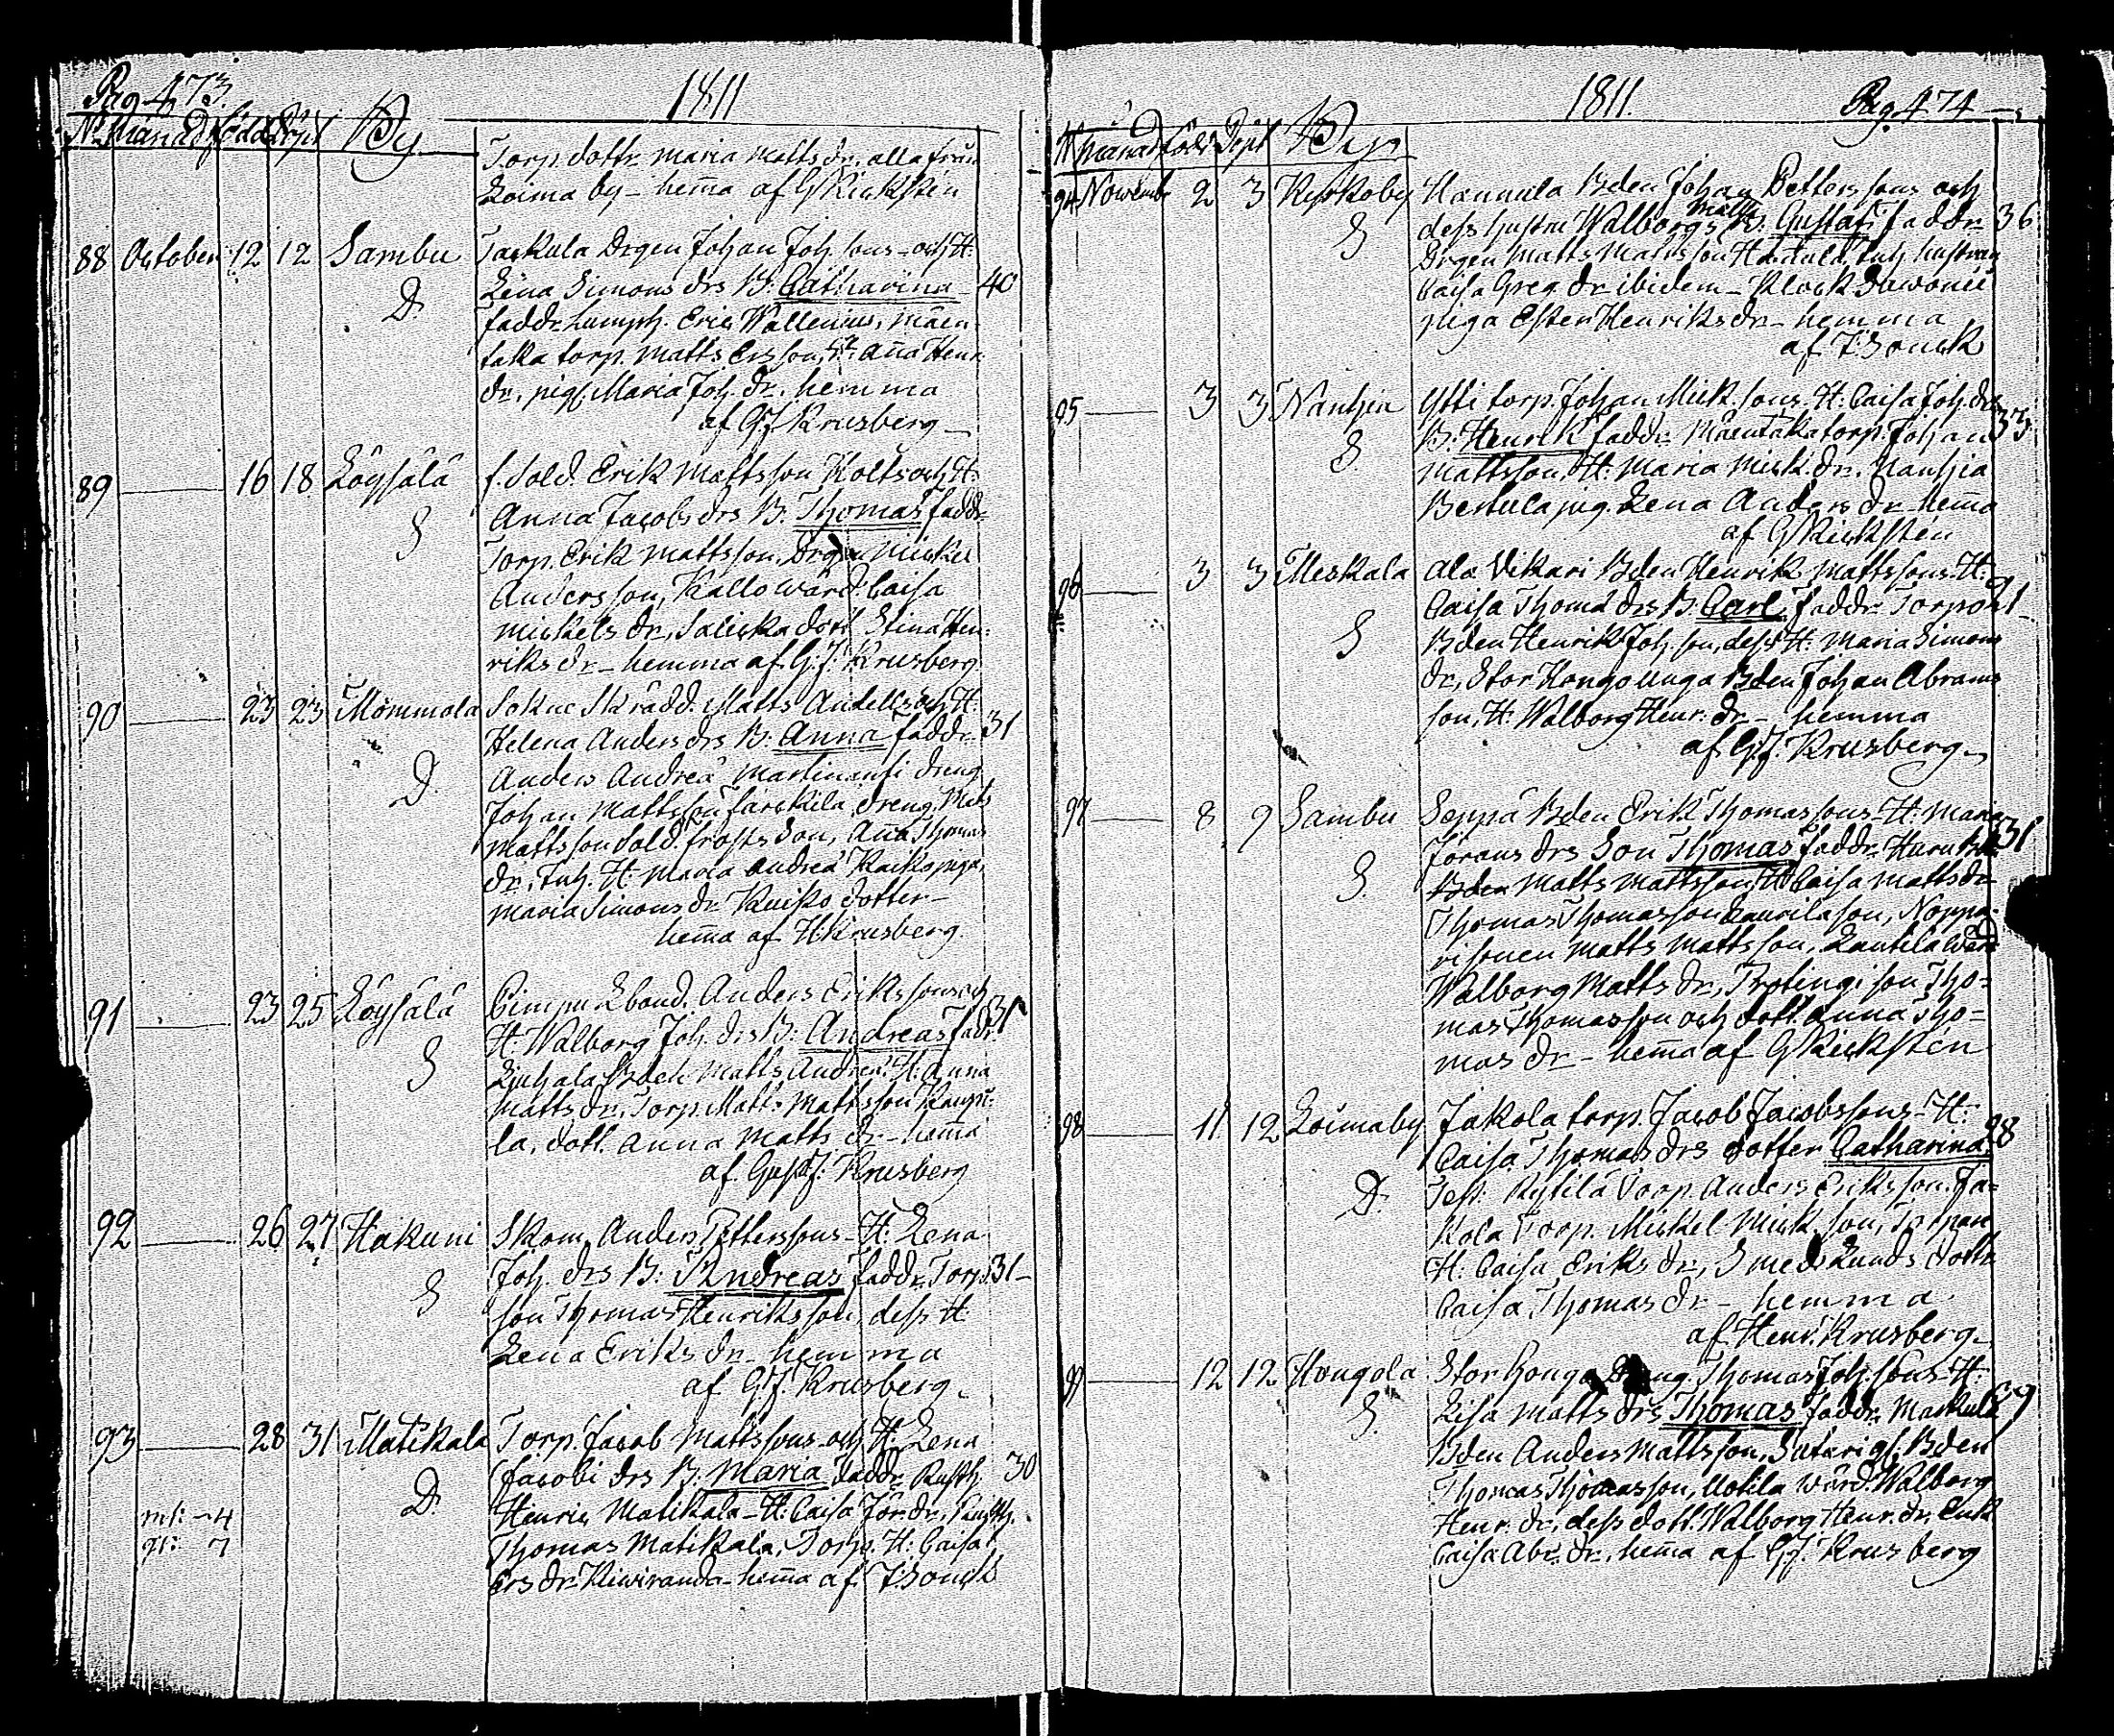 Pag. 473. 1811
No Månad född Döpt By
Torp. dottr. Maria Matts dr, alla från
Loima by – hemma af G Rickstén
88 October 12 12 Sambu Tackula Drgen Johan Joh. sons och H:
Lena Simons drs B: Catharina 40
D. faddr. Lumph. Eric Wallenius, Mäen
taka torp. Matts Ersson, H: Anna Henr.
dr, pig. Maria Joh. dr, hemma
af G.J. Krusberg
89 16 18 Löysälä f. Sold. Erik Mattsson Kolts och H:
S Anna Jacobs drs B. Thomas faddr.
Torp. Erik Mattsson, Drgen Mickel
Andersson, Kallo wärd. Caisa
Mickels dr, Salicka dott Stina Hen-
riks dr – hemma af G.J: Krusberg
90 23 23 Mommola Sokne Skrädd. Matts Andells och H:
Helena Anders drs B: Anna faddr. 31
D. Anders Andreä Martinansi dreng
Johan Mattsson, Särkilä dreng, Matts
Mattsson Sold. frosts Son, Anna Thomas
dr, Inh. H: Maria Andreä Kaicko piga,
Maria Simons dr Kuiko dotter –
hemma af H: Krusberg.
91 23 25 Löysälä Cimpu Lbond. Anders Erikssons och 31
S H: Walborg Joh. drs B: Andreas faddr.
Liuhala Bden Matts Andreä H: Anna
Matts dr, Torp. Matts Mattsson Kaupi-
la, dott. Anna Matts dr – hemma
af Gust J: Krusberg
92 26 27 Hakuni Skom. Anders Petterssons – H: Lena
S Joh. drs B: Andreas faddr. Torp 31
son Thomas Henriksson, dess H:
Lena Eriks dr – hemma
af G.J. Krusberg
93 28 31 Matikala Torp. Jacob Mattssons och H: Lena
D. Jacobi drs B. Maria faddr. Rusth. 30
m: – 4 Henric Matikala – H: Caisa Jör. dr, Rusth.
q: 7 Thomas Matikala, Torp. H: Caisa
Ers dr Kiwiranda – hemma af J: Sonck
1811. Pag. 474
N Månad född Döpt By
94 Novemb 2 3 Kyrkoby Hannula Bden Johan Petterssons och
S dess hustru Walborg Matts B: Gustaf faddr. 36
Drgen Matts Mattsson Hannula, Inh hustrun
Caisa Greg. dr ibidem – Klock Sawonii
piga Ester Henriks dr – hemma
af J: Sonck
95 3 3 Nanhia Ytti torp. Johan Mick. sons H: Caisa Joh. drs 33
S B. Henrik faddr. Mäentaka torp. Johan
Mattsson, H: Maria Mick. dr, Nanhia
Bertula pig. Lena Anders dr hemma
af G Rickstén
96 3 3 Meskala Ala Vikari Bden Henrik Mattssons H: 21
S Caisa Thoms drs B: Carl faddr. Torpon
Bden Henrik Joh. son, dess H: Maria Simons
dr, Stor Hongo unga Bden Johan Abrams
son, H: Walborg Henr: dr – hemma
af G.J. Krusberg
97 8 9 Sambu Seppä Bden Erik Thomassons H: Maria
S. Jörans drs Son Thomas faddr. 31
Bden Matts Mattsson H: Caisa Matts dr
Thomas Thomasson Laurila son, Noppa-
ri sonen Matts Mattsson, Lautila wärd
Walborg Matts dr, Protingi son Tho-
mas Thomasson och dott. Anna Tho-
mas dr – hemma af G Rickstén
98 11 12 Loimaby Jakola torp. Jacob Jacobssons H: 28
Caisa Thomas drs dotter Catharina
D. Test: Kytilä Torp. Anders Eriksson. Ja-
kola Torp. Mickel Mick. son,
H: Caisa Eriks dr, Smed Lunds dottr
Caisa Thomas dr – hemma
af Henr. Krusberg
99 12 12 Hongola Stor hongo Dreng. Thomas Joh. sons H:
S. Lisa Matts drs Thomas faddr. Markula 29
Bden Anders Mattsson, Satari gl. Bden
Thomas Thomasson, Uotila wärd. Walborg
Henr. dr, dess dott. Walborg Henr. dr, Enk
Caisa Abr. dr, hemma af G.J. Krusberg